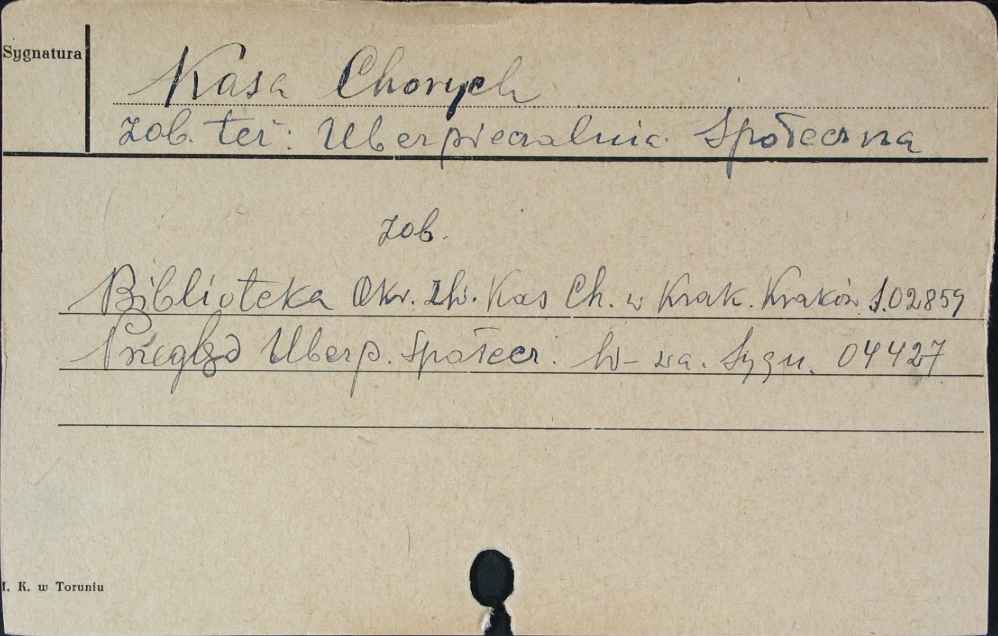 Sygnatura
Kasa Chorych
zob. też: Ubezpieczalnia Społeczna
zob.
Biblioteka Okr. Zw. Kas Ch. w Krak. Kraków S.02859
Przegląd Ubezp. Społecz. W-wa. Sygn. 04427
I. K. w Toruniu